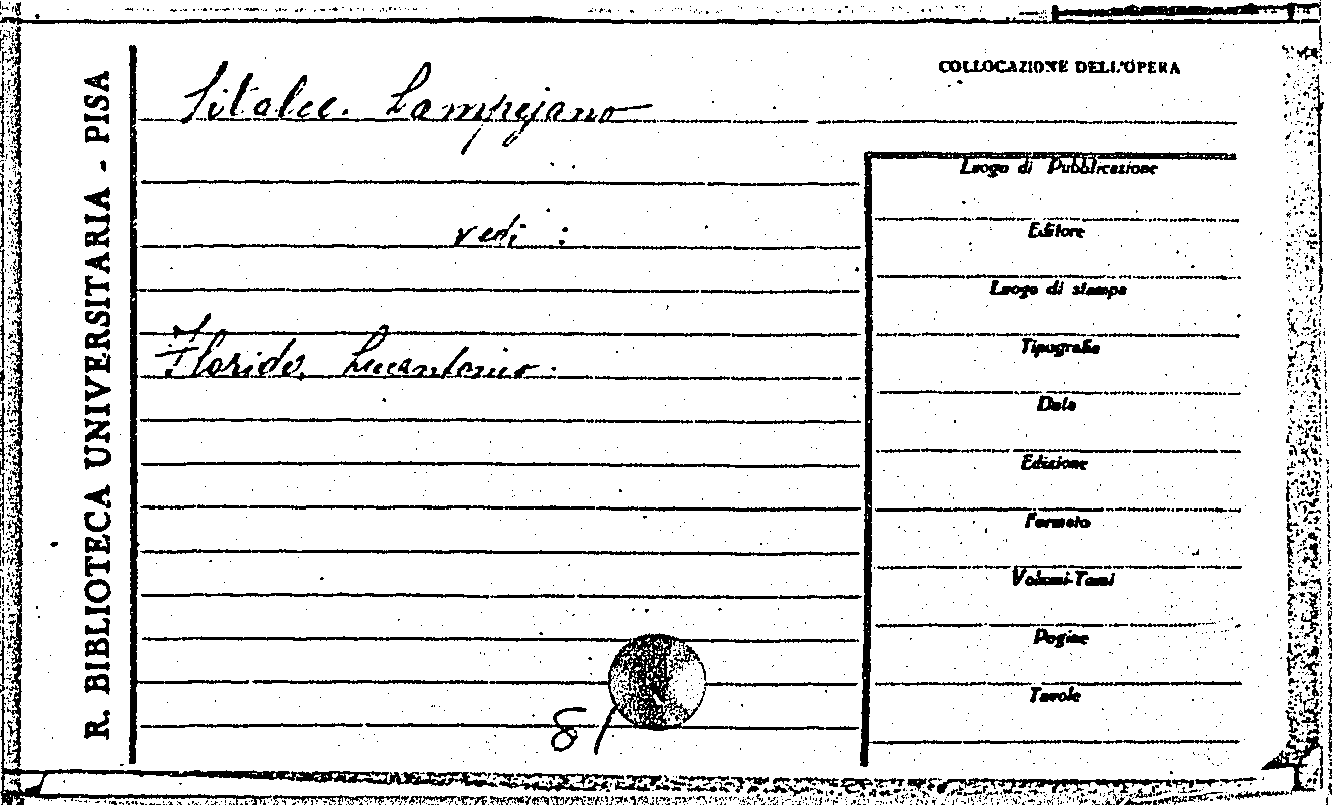 R. BIBLIOTECA UNIVERSITARIA - PISA
Sitalce. Lampejano
vedi :
Florido, Lucantonio.
8/
COLLOCAZIONE DELL'OPERA
Luogo di Pubblicazione
Editore
Luogo di stampa
Tipografia
Data
Edizione
Formato
Volumi-Tomi
Pagine
Tavole